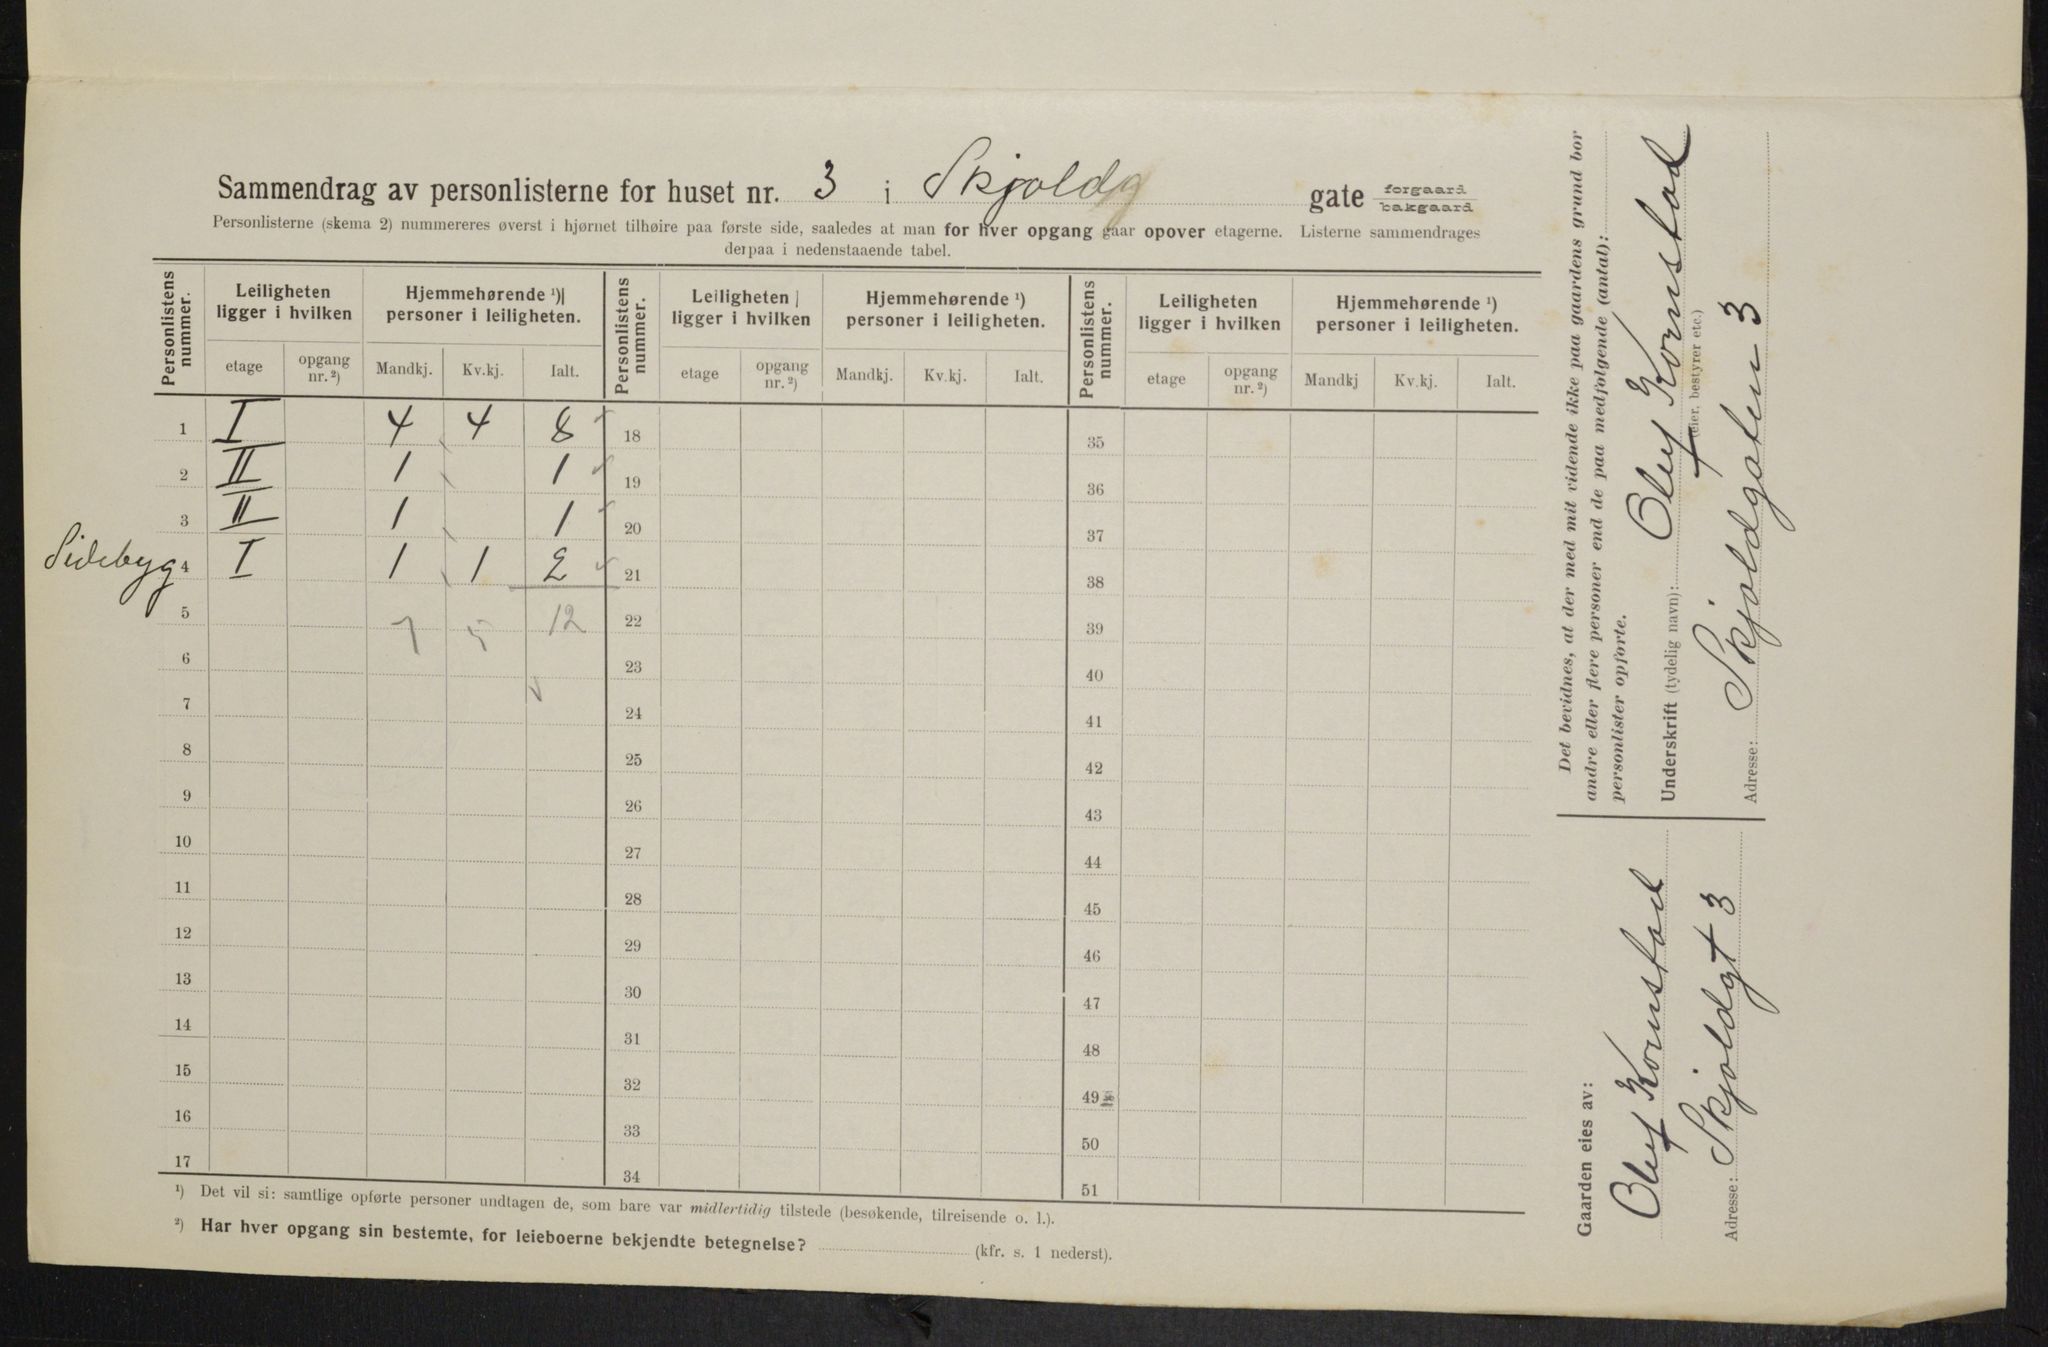 Sammendrag av personlisterne for huset nr. 3 i Skjoldg gate forgaard bakgaard
Personlisterne (skema 2) nummereres øverst i hjørnet tilhøire paa første side, saaledes at man for hver opgang gaar opover etagerne. Listerne sammendrages
derpaa i nedenstaaende tabel.
Personlistens nummer. Leiligheten ligger i hvilken Hjemmehørende ¹) personer i leiligheten. Personlistens nummer. Leiligheten ligger i hvilken Hjemmehørende ¹) personer i leiligheten. Personlistens nummer. Leiligheten ligger i hvilken Hjemmehørende ¹) personer i leiligheten.
etage opgang nr. ²) Mandkj. Kv.kj. Ialt. etage opgang nr. ²) Mandkj. Kv.kj. Ialt. etage opgang nr. ²) Mandkj Kv.kj. Ialt.
1 I 4 4 8 18 35
2 II 1 1 19 36
3 II 1 1 20 37
Sidebyg 4 I 1 1 2 21 38
5 7 5 12 22 39
6 23 40
7 24 41
8 25 42
9 26 43
10 27 44
11 28 45
12 29 46
13 30 47
14 31 48
15 32 49
16 33 50
17 34 51
¹) Det vil si: samtlige opførte personer undtagen de, som bare var midlertidig tilstede (besøkende, tilreisende o. l.).
²) Har hver opgang sin bestemte, for leieboerne bekjendte betegnelse? (kfr. s. 1 nederst).
Gaarden eies av:
Oluf Kornstad
Adresse: Skjoldgt 3
Det bevidnes, at der med mit vidende ikke paa gaardens grund bor
andre eller flere personer end de paa medfølgende (antal):
personlister opførte.
Underskrift (tydelig navn): Oluf Kornstad
(eier, bestyrer etc.)
Adresse: Skjoldgaten 3